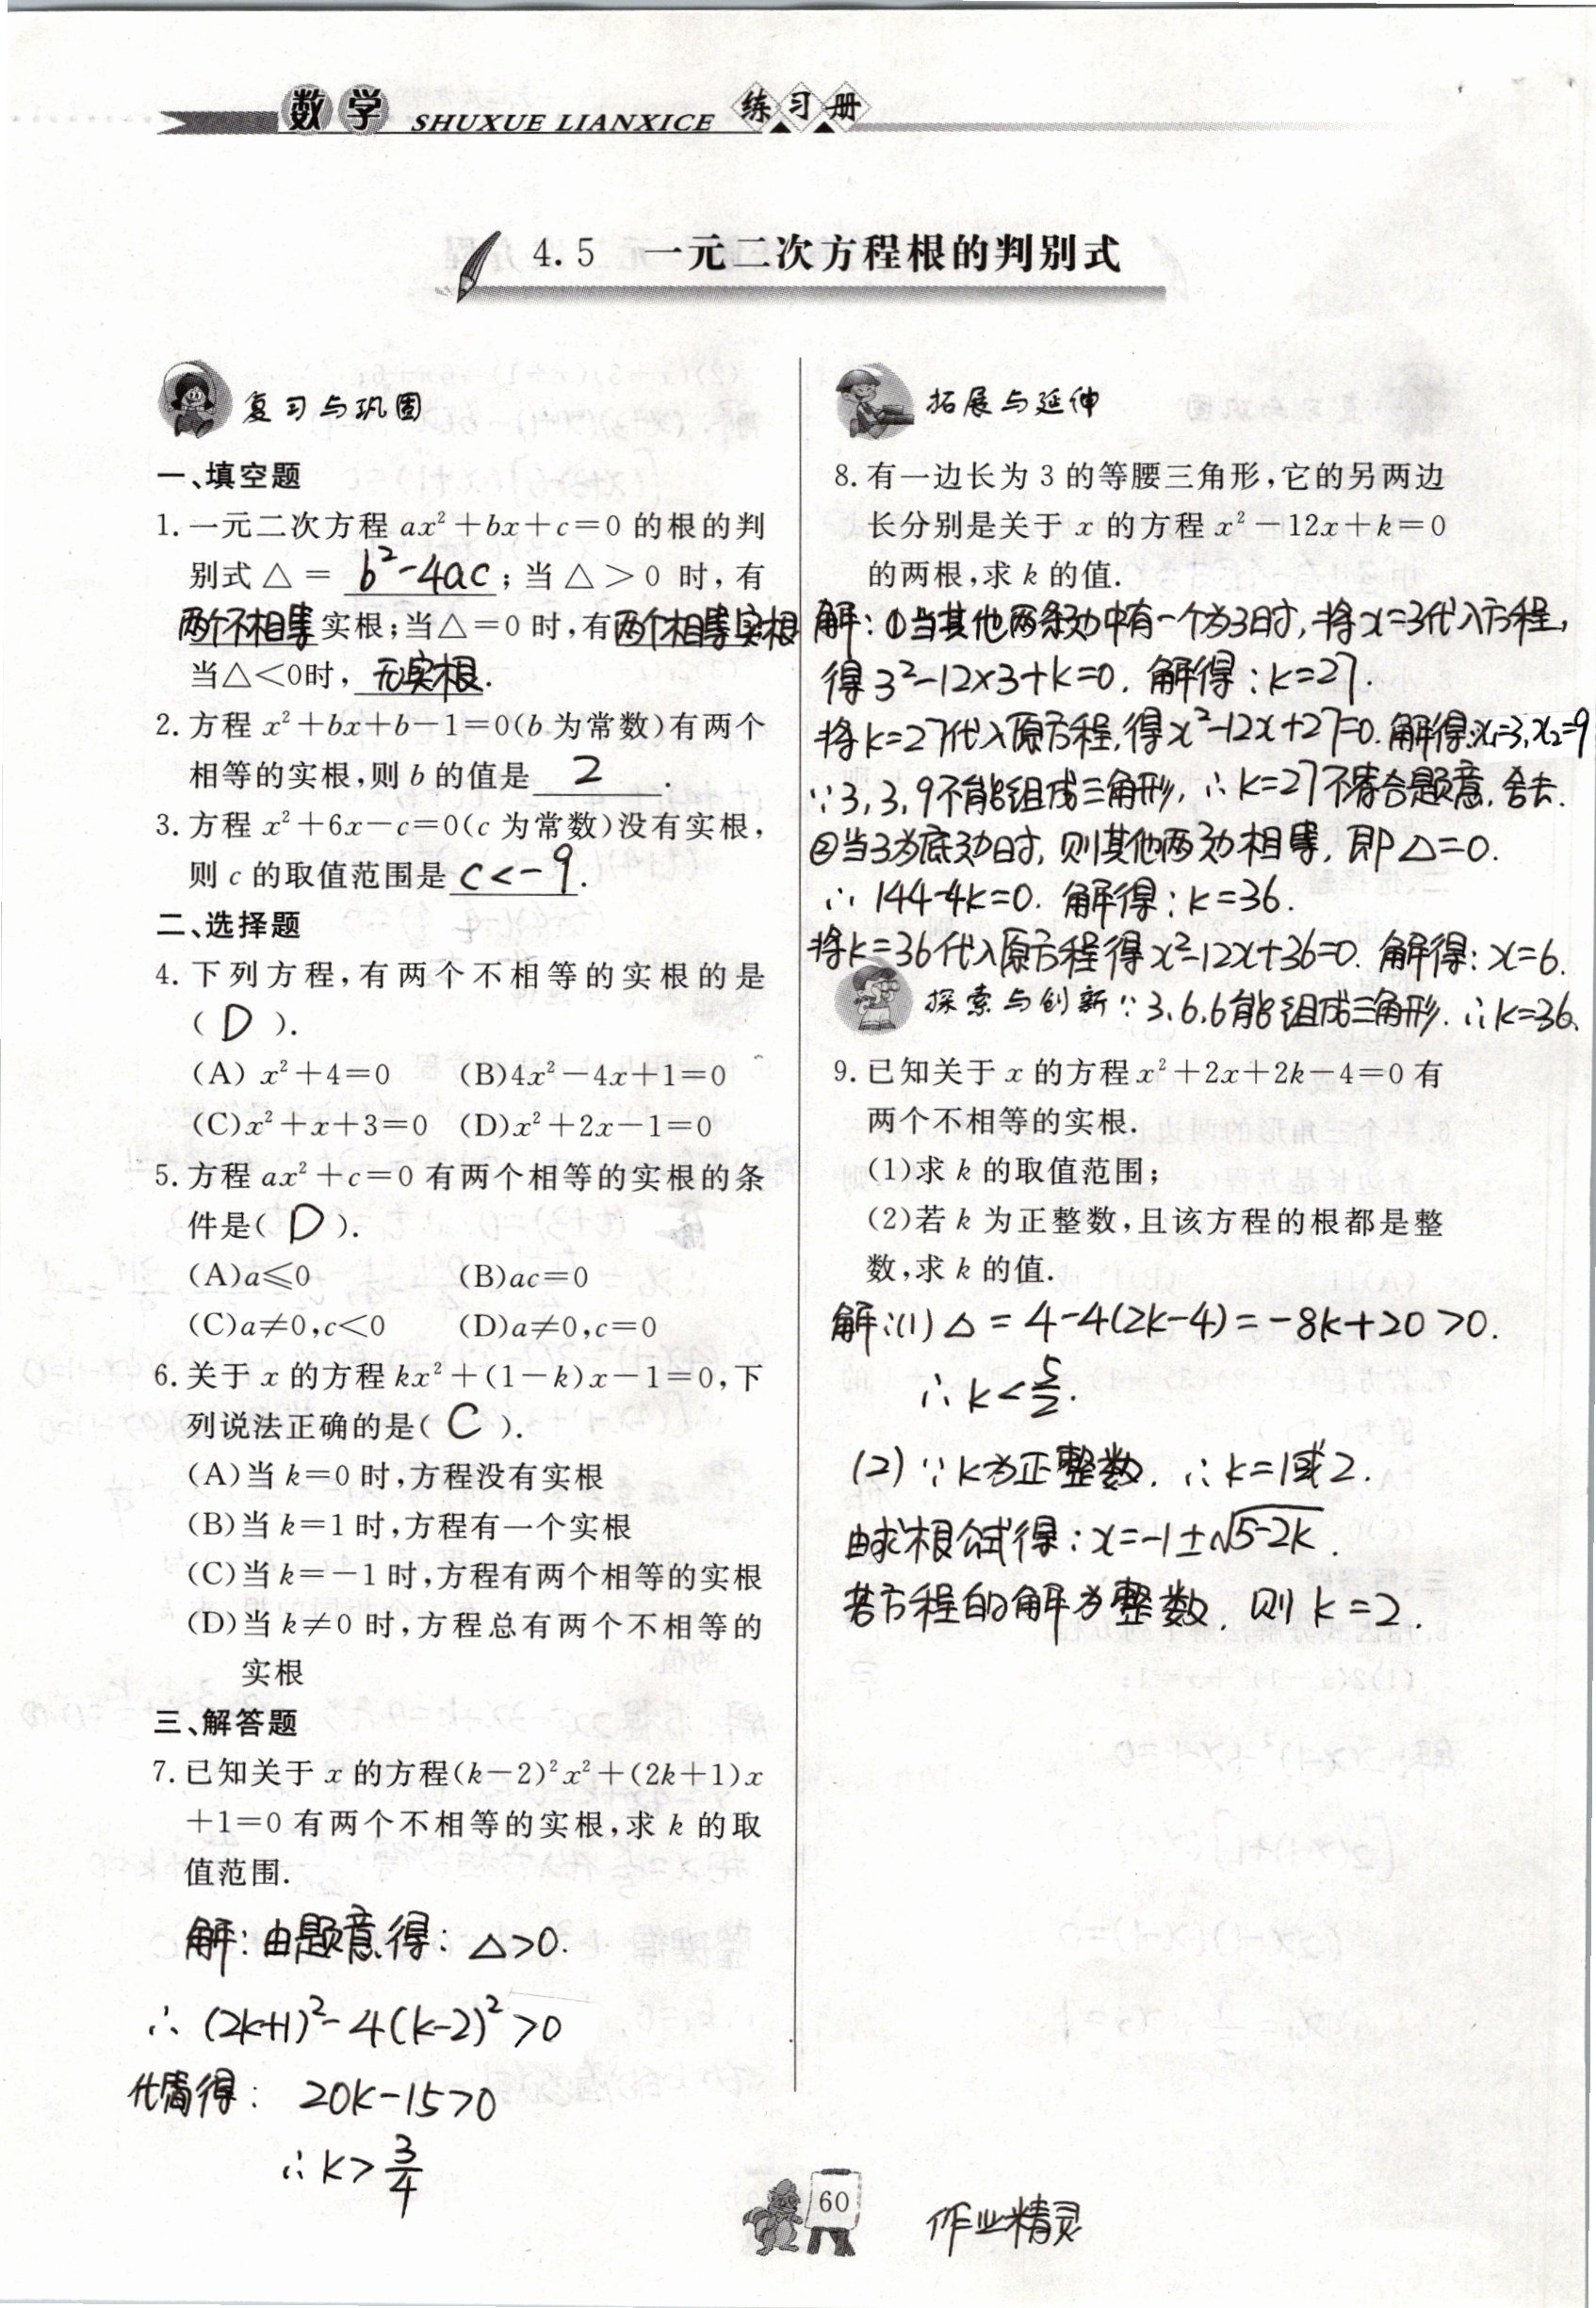 数学 SHUXUE LIANXICE 练习册
4.5 一元二次方程根的判别式
复习与巩固
一、填空题
1. 一元二次方程 ax²+bx+c=0 的根的判
别式 △ = b²-4ac ; 当 △>0 时,有
两个不相等实根;当△=0 时,有两个相等实根
当△<0时, 无实根.
2. 方程 x²+bx+b-1=0(b 为常数)有两个
相等的实根,则 b 的值是 2 .
3. 方程 x²+6x-c=0(c 为常数)没有实根,
则 c 的取值范围是 c<-9.
二、选择题
4. 下列方程,有两个不相等的实根的是
( D ).
(A) x²+4=0 (B)4x²-4x+1=0
(C)x²+x+3=0 (D)x²+2x-1=0
5. 方程 ax²+c=0 有两个相等的实根的条
件是( D ).
(A)a≤0 (B)ac=0
(C)a≠0,c<0 (D)a≠0,c=0
6. 关于 x 的方程 kx²+(1-k)x-1=0,下
列说法正确的是( C ).
(A)当 k=0 时,方程没有实根
(B)当 k=1 时,方程有一个实根
(C)当 k=-1 时,方程有两个相等的实根
(D)当 k≠0 时,方程总有两个不相等的
实根
三、解答题
7. 已知关于 x 的方程(k-2)²x²+(2k+1)x
+1=0 有两个不相等的实根,求 k 的取
值范围.
解:由题意得: △>0.
∴ (2k+1)²-4(k-2)²>0
化简得: 20k-15>0
∴k>3/4
拓展与延伸
8. 有一边长为 3 的等腰三角形,它的另两边
长分别是关于 x 的方程 x²-12x+k=0
的两根,求 k 的值.
解:①当其他两条边中有一个为3时,将x=3代入方程,
得3²-12×3+k=0. 解得:k=27.
将k=27代入原方程,得x²-12x+27=0.解得:x₁=3,x₂=9
∵3,3,9不能组成三角形,∴k=27不符合题意,舍去.
②当3为底边时,则其他两边相等,即△=0.
∴144-4k=0. 解得:k=36.
将k=36代入原方程得x²-12x+36=0. 解得:x=6.
探索与创新 ∵3,6,6能组成三角形.∴k=36.
9. 已知关于 x 的方程 x²+2x+2k-4=0 有
两个不相等的实根.
(1)求 k 的取值范围;
(2)若 k 为正整数,且该方程的根都是整
数,求 k 的值.
解:(1) △ = 4-4(2k-4)=-8k+20>0.
∴k<5/2.
(2)∵k为正整数. ∴k=1或2.
由求根公式得:x=-1±√5-2k.
若方程的解为整数, 则k=2.
60
作业精灵